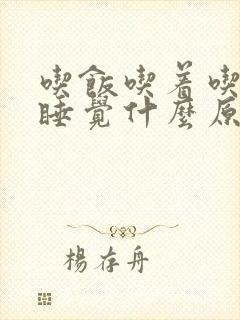 喫飯喫着喫
睡覺什麼原
楊存舟